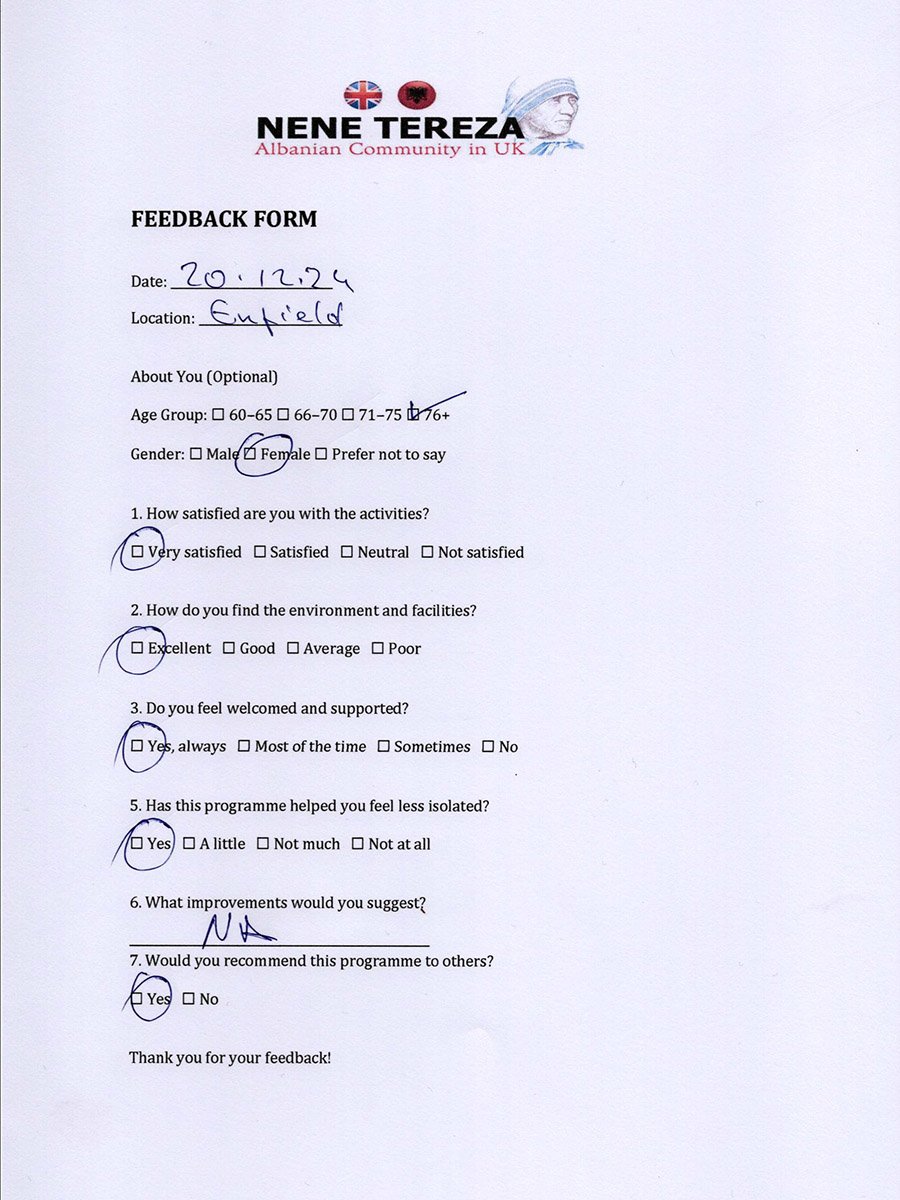 NENE TEREZA
Albanian Community in UK
FEEDBACK FORM
Date: 20.12.24
Location: Enfield
About You (Optional)
Age Group: ☐ 60–65 ☐ 66–70 ☐ 71–75 ☑ 76+
Gender: ☐ Male ☐ Female ☐ Prefer not to say
1. How satisfied are you with the activities?
☐ Very satisfied ☐ Satisfied ☐ Neutral ☐ Not satisfied
2. How do you find the environment and facilities?
☐ Excellent ☐ Good ☐ Average ☐ Poor
3. Do you feel welcomed and supported?
☐ Yes, always ☐ Most of the time ☐ Sometimes ☐ No
5. Has this programme helped you feel less isolated?
☐ Yes ☐ A little ☐ Not much ☐ Not at all
6. What improvements would you suggest?
NA
7. Would you recommend this programme to others?
☐ Yes ☐ No
Thank you for your feedback!